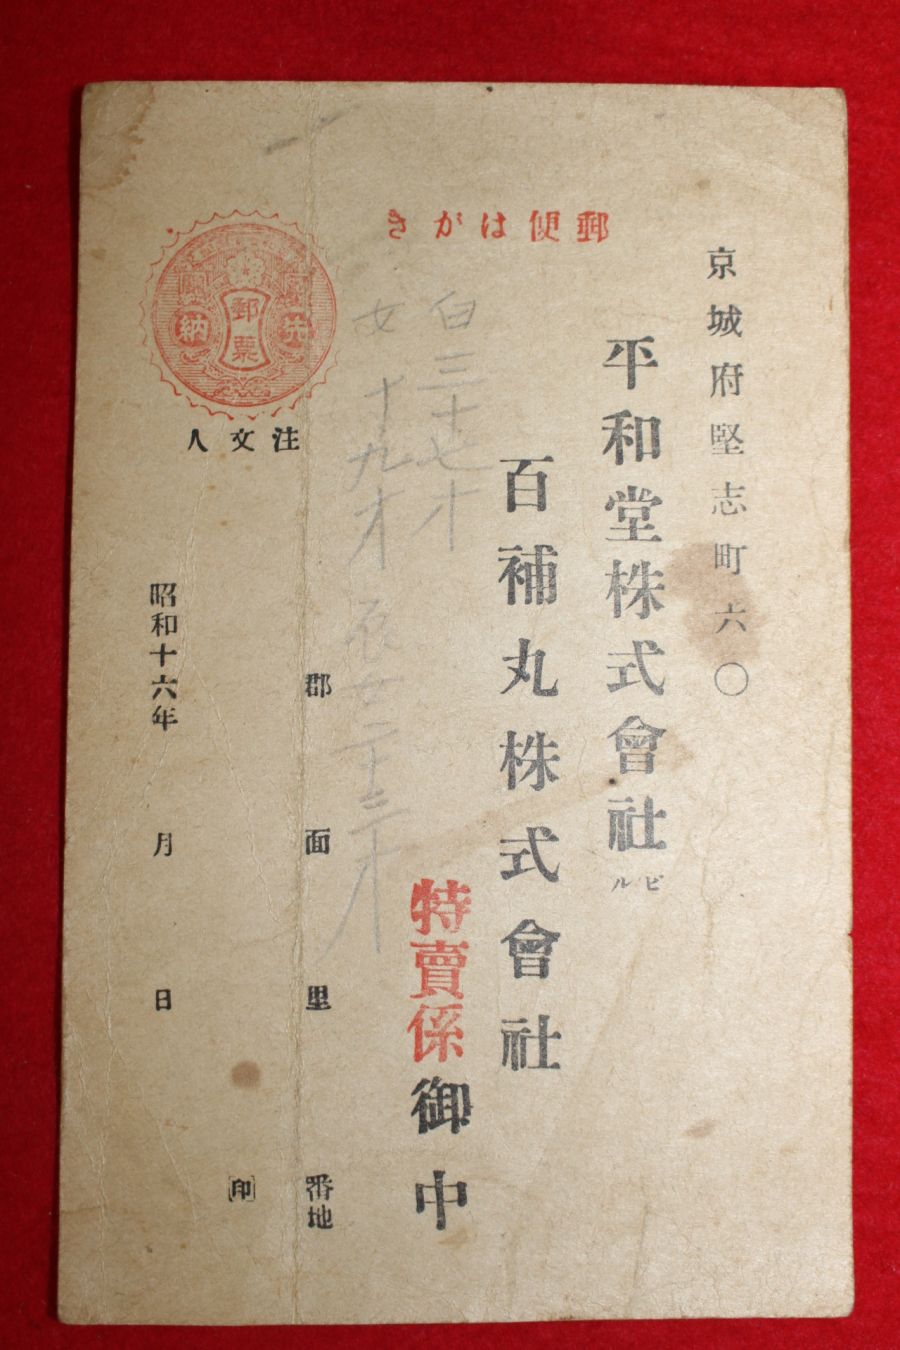 郵便はがき
京城府堅志町六〇
平和堂株式會社ビル
百補丸株式會社
特賣係御中
白三十七才
女十九才
女二十三才
郵票
先納
注文人
郡 面 里 番地
印
昭和十六年 月 日